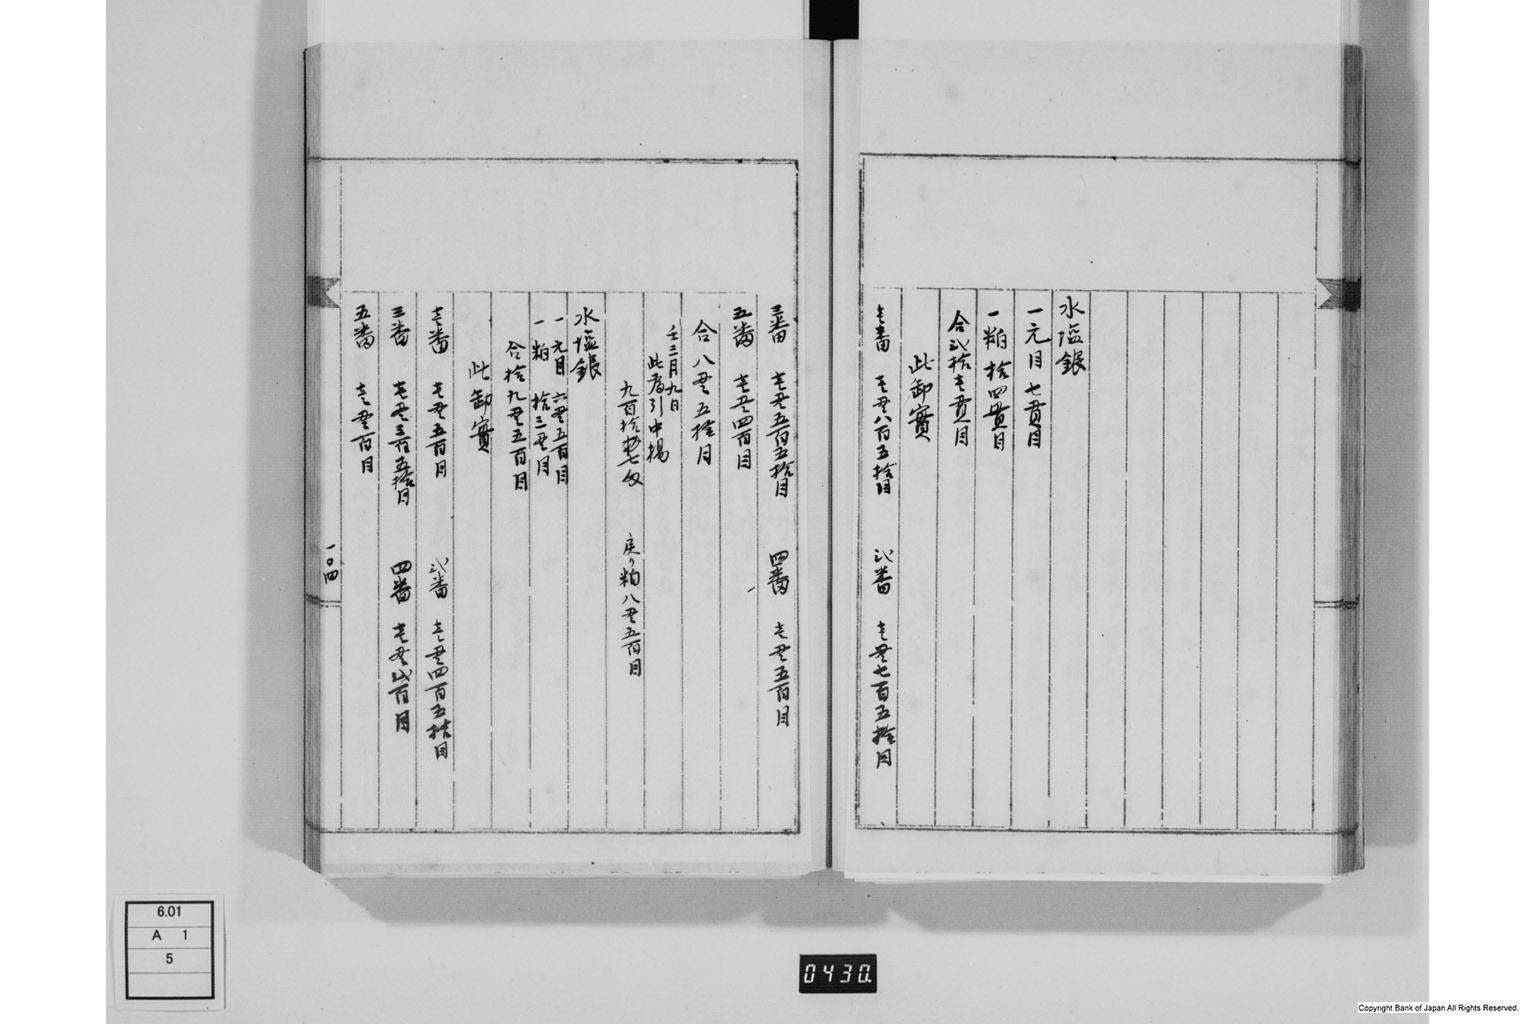 水塩銀
一元目 七貫目
一粕 拾四貫目
合弐拾壱貫目
此卸實
壱番 壱〆八百五拾目 弐番 壱〆七百五拾目
三番 壱〆五百五拾目 四番 壱〆五百目
五番 壱〆四百目
合八〆五拾目
壬二月九日
此為引中揚
九百拾匁七分 戻り粕八〆五百目
水塩銀
一元目 六〆五百目
一粕 拾三〆目
合拾九〆五百目
此卸實
壱番 壱〆五百目 弐番 壱〆四百五拾目
三番 壱〆三百五拾目 四番 壱〆弐百目
五番 壱〆百目
一〇四
6.01
A 1
5
0430.
Copyright Bank of Japan All Rights Reserved.